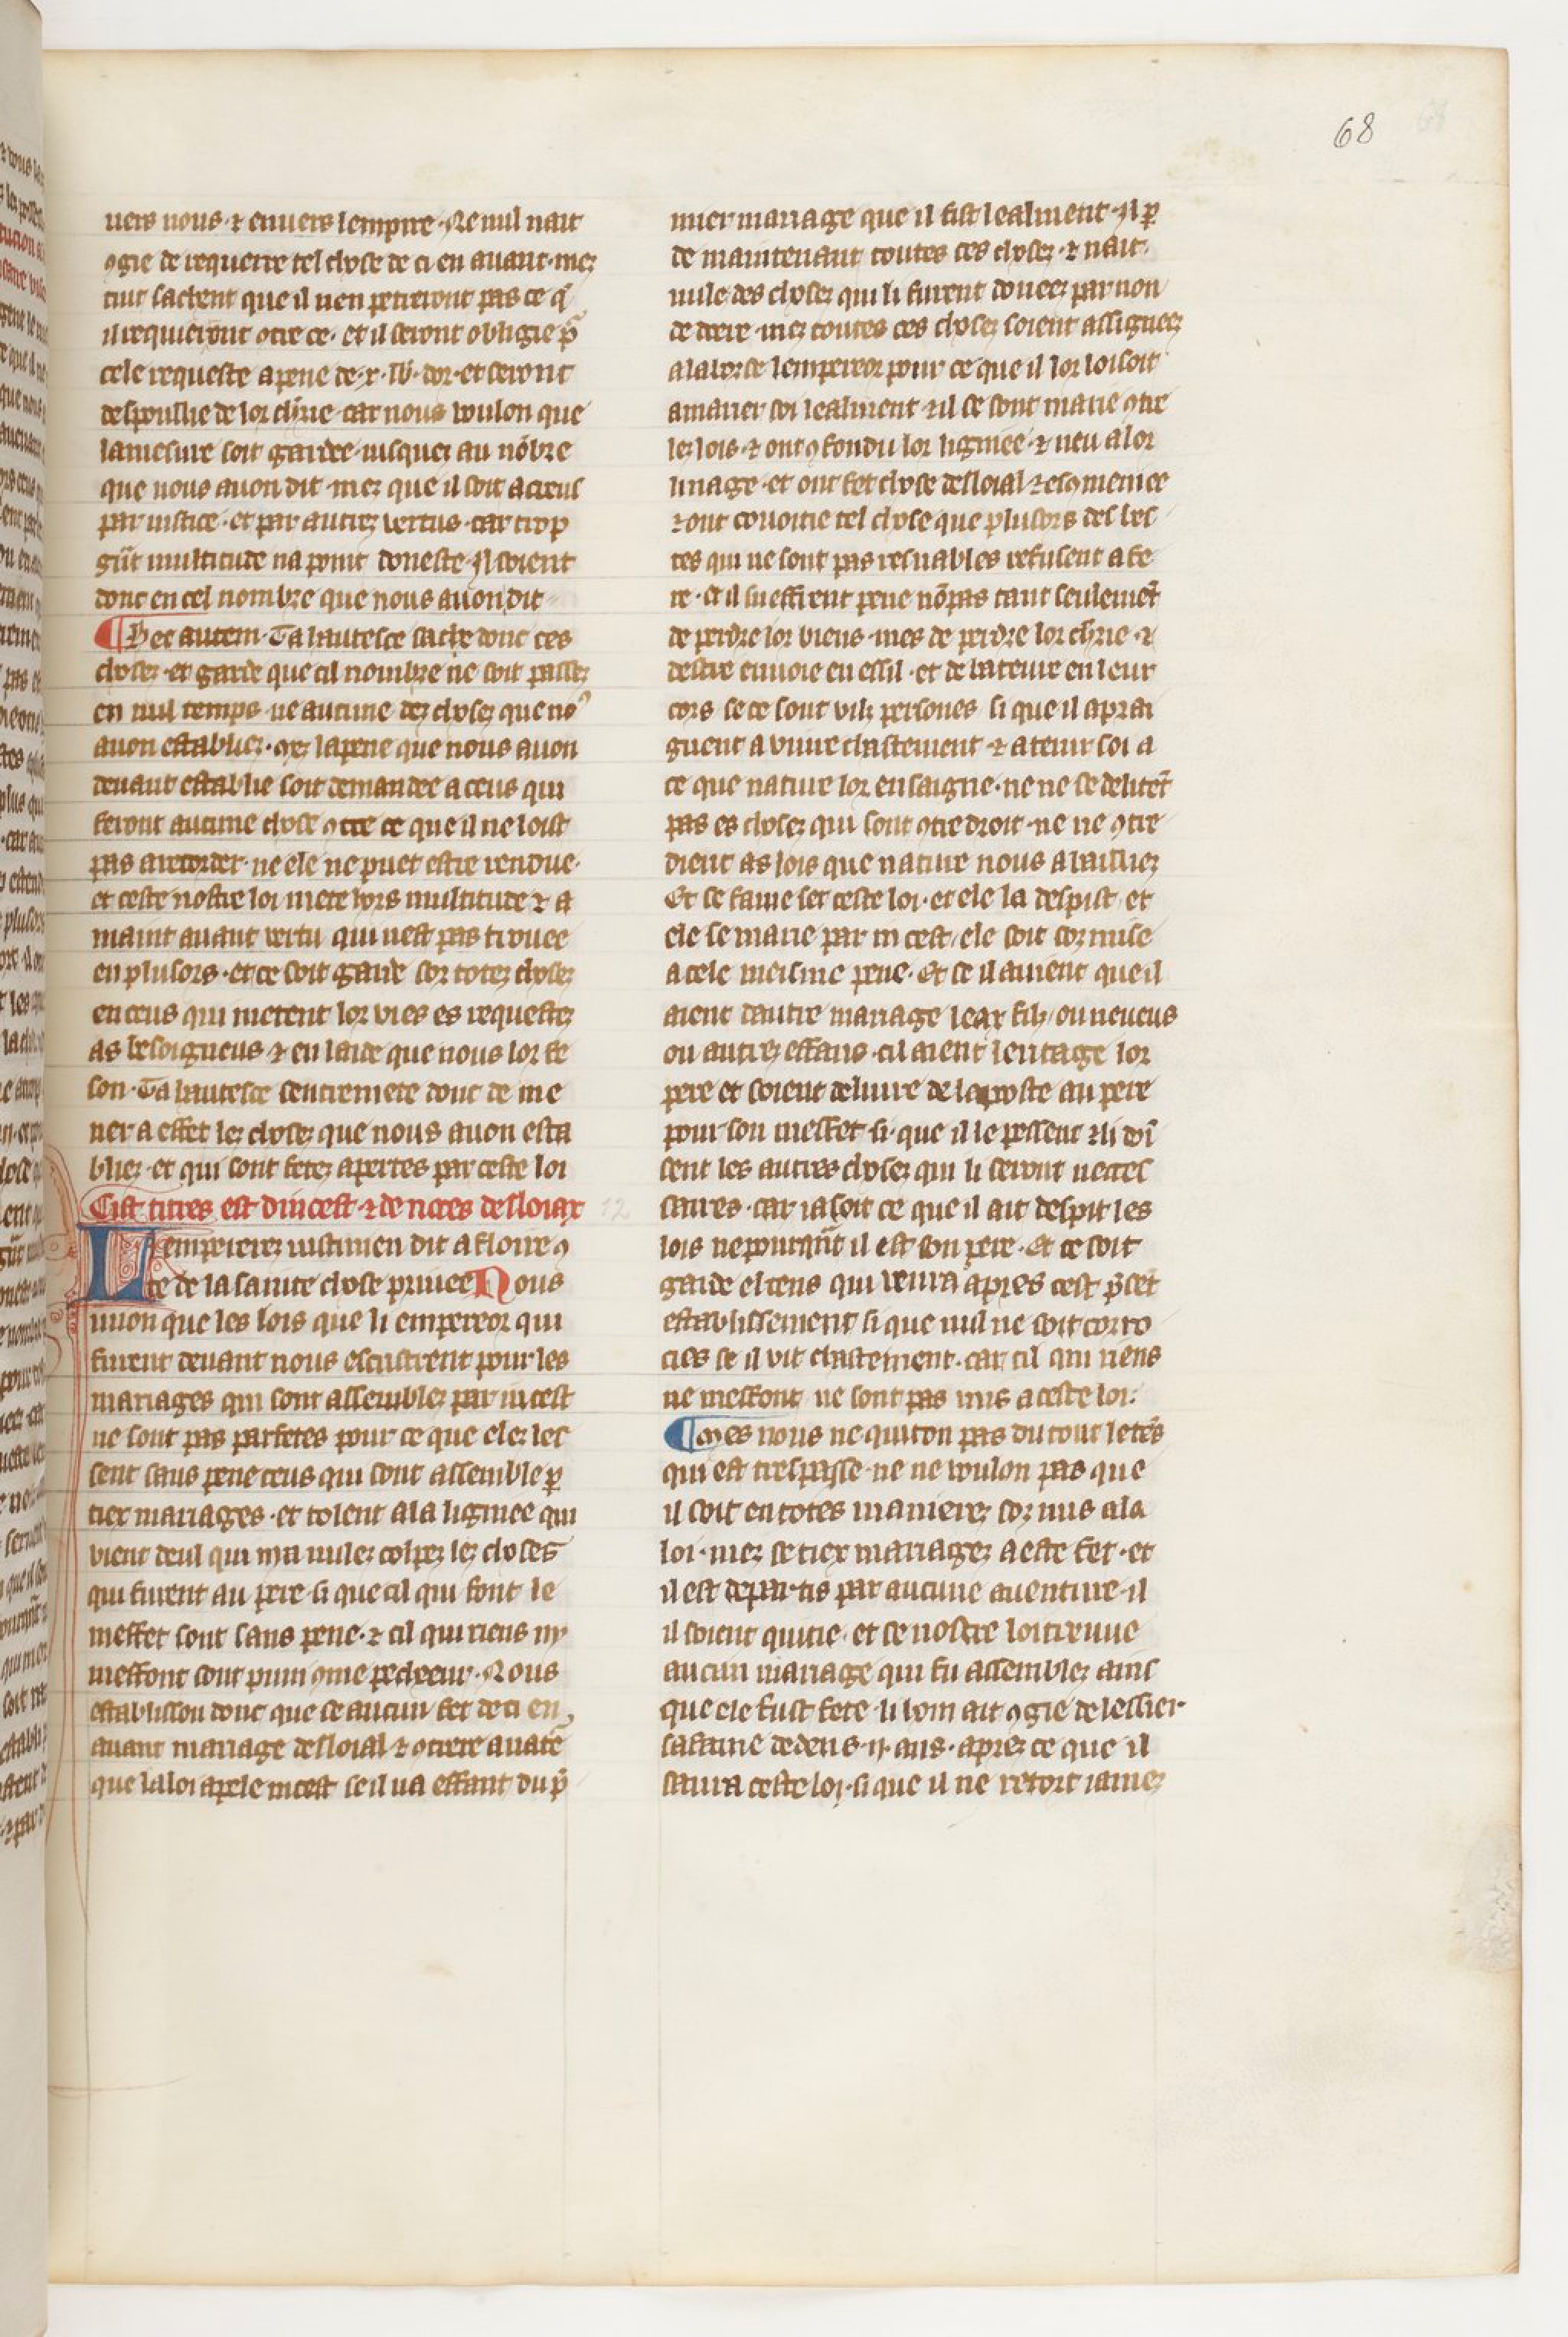 68
uers nous · ⁊ enuers lempire · Ne nul nait
ꝯgie de requerre tel chose de ci en auant · mez
tuit sachent que il nen peticront pas ce q̄
il requierront ꝯtre ce · et il seront obligie p̄
cele requeste a pene de · x · lb · dor · et seront
despoullie de lor ch̄rie · car nous voulon que
la mesure soit gardee iusquez au nōbre
que nous auon dit · mez que il soit acreus
par iustice · et par autrez vertus · car trop
gn̄t multitude na point doneste · Il soient
donc en cel nombre que nous auon dit
¶ Hec autem · Ta hautesce sache donc ces
chosez · et garde que cil nombre ne soit passez
en nul temps · ne aucune dez chosez que noꝰ
auon establiez · mez la pene que nous auon
deuant establie soit demandee a ceus qui
feront aucune chose ꝯtre ce que il ne loist
pas a retorder · ne ele ne puet estre rendue ·
et ceste nostre loi mete hors multitude ⁊ a
maint auant vertu qui nest pas trouuee
en plusors · et ce soit garde sor totez chosez
en ceus qui metent lor vies es requestez
as besoigneus ⁊ en laide que nous lor fe
son · Ta hautesce sentremete donc de me
ner a effet lez chosez que nous auon esta
bliez · et qui sont fetez apertes par ceste loi
Cist titres est dincest ⁊ de noces desloiax
Lempererez iustinien dit a floire ꝯ
te de la sainte chose priuee Nous
iuion que les lois que li empereor qui
furent deuant nous escristrent pour les
mariages qui sont assemblez par incest
ne sont pas parfetes pour ce que elez les
sent sans pene ceus qui sont assemble ꝑ
tiex mariages · et tolent a la lignee qui
vient deul qui ni a nulez colpez lez choses
qui furent au pere · si que cil qui font le
meffet sont sans pene · ⁊ cil qui riens ny
meffont sont puni ꝯme pecheeur · Nous
establisson donc que se aucun fet de ci en
auant mariage desloial ⁊ ꝯtrere a natē
que la loi apele incest se il na effant du p̄
mier mariage que il fist lealment · Il ꝑ
de maintenant toutes ces chosez · ⁊ nait
nule des chosez qui li furent donees par non
de doere · mez toutes ces chosez soient assigneez
a la borse lempereor pour ce que il lor loisoit
a marier soi lealment ⁊ il se sont marie ꝯtre
lez lois · ⁊ ont ꝯfondu lor lignee · ⁊ neu a lor
linage · et ont fet chose desloial ⁊ escomenice
⁊ ont couoitie tel chose que plusors des bes
tes qui ne sont pas resnables refusent a fe
re · et il sueffrent pene nō pas tant seulemēt
de perdre lor biens · mes de perdre lor ch̄rie · ⁊
destre enuoie en essil · et de bateure en leur
cors se ce sont vilz persones si que il aprai
gnent a viure chastement ⁊ a tenir soi a
ce que nature lor ensaigne · ne ne se delitēt
pas es chosez qui sont ꝯtre droit · ne ne ꝯtre
dient as lois que nature nous a baillez
Et se fame set ceste loi · et ele la despist et
ele se marie par incest ele soit soz mise
a cele meisme pene · Et se il auient que il
aient dautre mariage leax filz ou neueus
ou autrez effans · cil aient leritage lor
pere et soient deliure de la poste au pere
pour son meffet si · que il le pessent ⁊ li doī
sent les autres chosez qui li seront neces
saires · car ia soit ce que il ait despit les
lois ne pourqn̄t il est son pere · Et ce soit
garde el tens qui venra apres cest p̄set
establissement si que nul ne soit corro
cies se il vit chastement · car cil qui riens
ne meffont ne sont pas mis a ceste loi ·
¶ Mes nous ne quiton pas du tout le tēs
qui est trespasse · ne ne voulon pas que
il soit en totes manierez soz mis a la
loi · mez se tiex mariagez a este fet · et
il est departis par aucune auenture · il
il soient quitie · et se nostre loi treuue
aucun mariage qui fu assemblez ains
que ele fust fete · li hom ait ꝯgie de lessier
sa fame dedens · ij · ans · aprez ce que il
saura ceste loi · si que il ne retort iamez